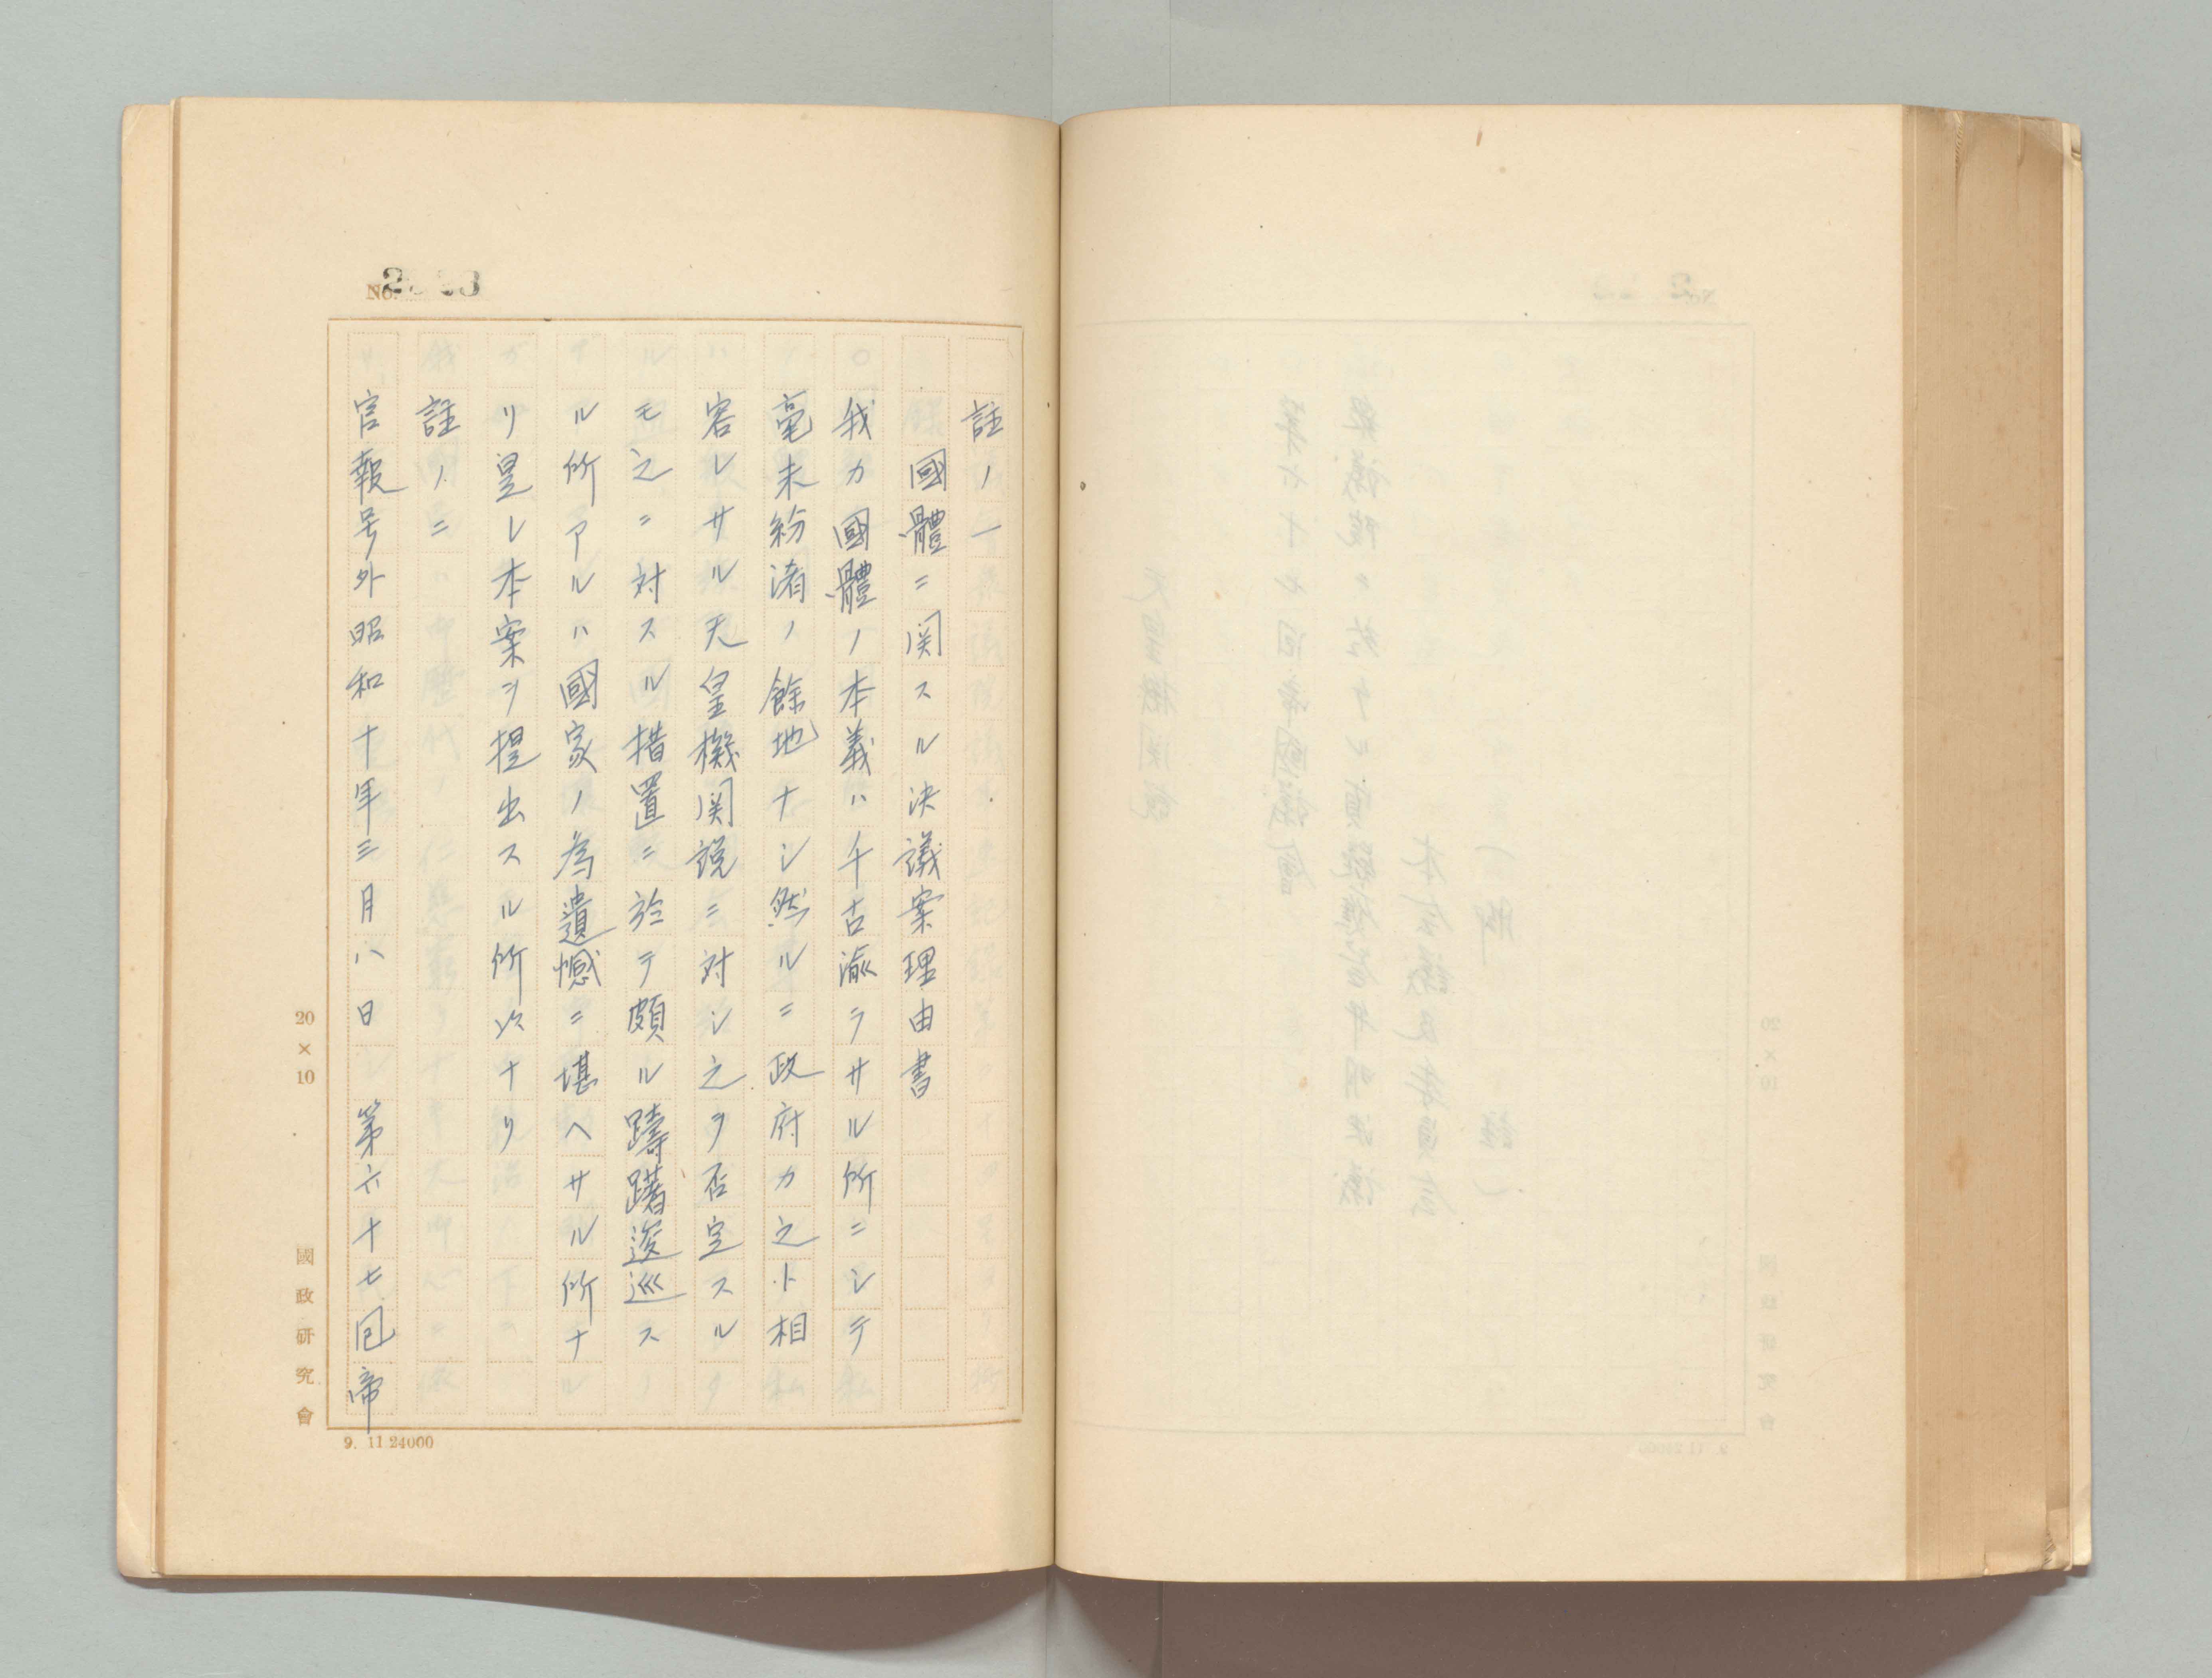 註ノ一
國體ニ関スル決議案理由書
我カ國體ノ本義ハ千古渝ラサル所ニシテ
毫末紛淆ノ餘地ナシ然ルニ政府カ之ト相
容レサル天皇機関説ニ対シ之ヲ否定スル
モ之ニ対スル措置ニ於テ頗ル躊躇逡巡ス
ル所アルハ國家ノ為遺憾ニ堪ヘサル所ナ
リ是レ本案ヲ提出スル所以ナリ
註ノニ
官報号外昭和十年三月八日 第六十七回帝
No.
20×10
國政研究會
9. 11 24000